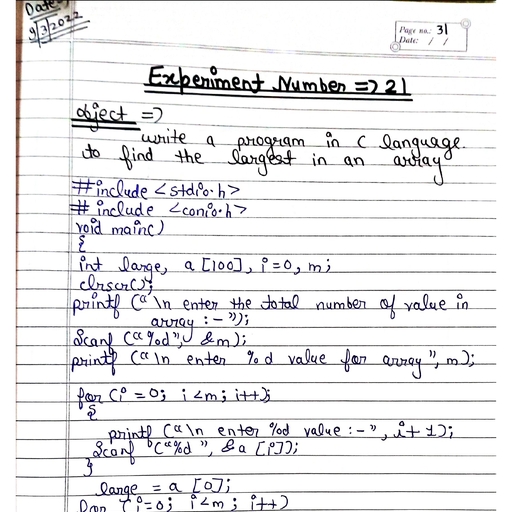 Date-
9/3/2022
Page no.: 31
Date: / /
Experiment Number => 21
object =>
write a program in C language.
to find the largest in an array
#include <stdio.h>
# include <conio.h>
void main()
{
int large, a [100], i=0, m;
clrscr();
printf ("\n enter the total number of value in
array :-");
Scanf ("%d", &m);
printf ("\n enter %d value for array", m);
for (i=0; i<m; i++);
{
printf ("\n enter %d value :-", i+1);
Scanf "("%d", &a [i]);
}
large = a [0];
For (i=0; i<m; i++)